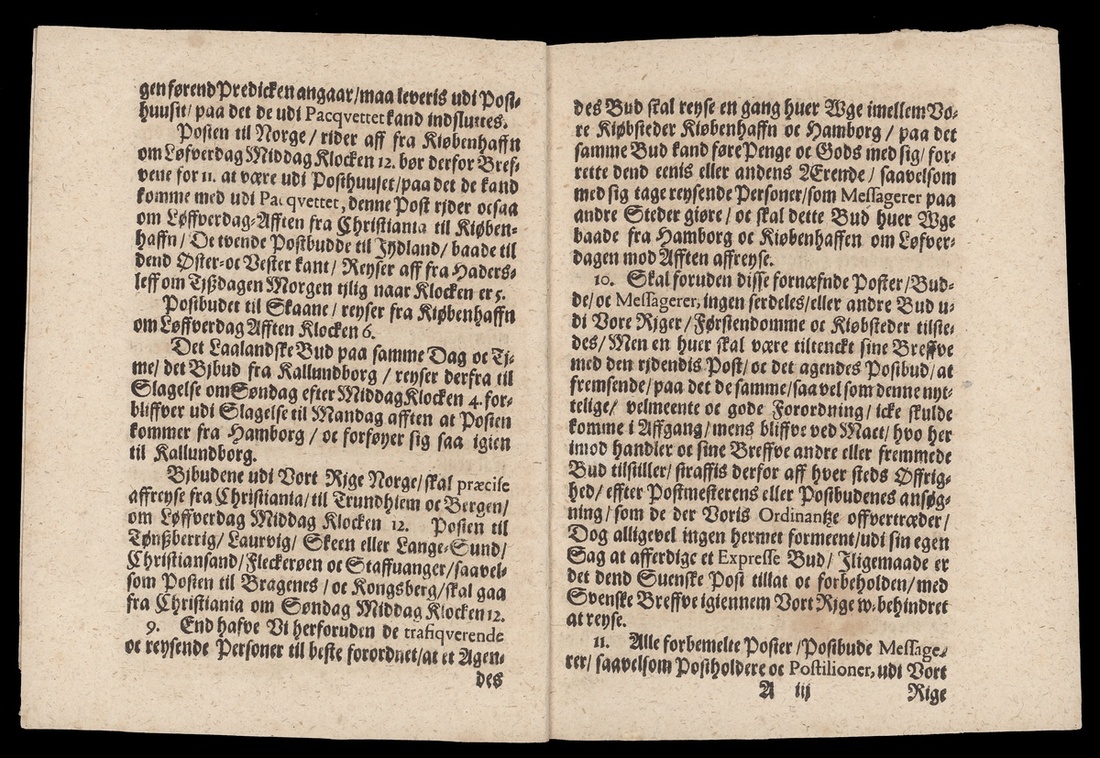 gen førend Predicken angaar/maa leveris udi Post-
huusit/ paa det de udi Pacqvettet kand indsluttes.
Posten til Norge/ rider aff fra Kiøbenhaffn
om Løfverdag Middag Klocken 12. bør derfor Bref-
vene for 11. at være udi Posthuuset/paa det de kand
komme med udi Pacqvettet, denne Post rjder ocsaa
om Løffverdag-Afften fra Christiania til Kiøben-
haffn/ De tvende Postbudde til Jydland/ baade til
dend Øster-oc Vester kant/ Reyser aff fra Haders-
leff om Tjßdagen Morgen tjlig naar Klocken er 5.
Postbudet til Skaane/ reyser fra Kiøbenhaffn
om Løffverdag Afften Klocken 6.
Det Laalandske Bud paa samme Dag oc Tj-
me/ det Bjbud fra Kallundborg/ reyser derfra til
Slagelse om Søndag efter Middag Klocken 4. for-
bliffver udi Slagelse til Mandag afften at Posten
kommer fra Hamborg/ oc forføyer sig saa igien
til Kallundborg.
Bjbudene udi Vort Rjge Norge/skal præcise
affreyse fra Christiania/til Trundhiem oc Bergen/
om Løffverdag Middag Klocken 12. Posten til
Tønßberrig/ Laurvig/ Skeen eller Lange-Sund/
Christiansand/Fleckerøen oc Staffuanger/saavel-
som Posten til Bragenes/ oc Kongsberg/skal gaa
fra Christiania om Søndag Middag Klocken 12.
9. End hafve Vi herforuden de trafiqverende
oc reysende Personer til beste forordnet/at et Agen-
des
des Bud skal reyse en gang huer Wge imellem Vo-
re Kiøbsteder Kiøbenhaffn oc Hamborg/ paa det
samme Bud kand føre Penge oc Gods med sig/ for-
rette dend eenis eller andens Ærende/ saavelsom
med sig tage reysende Personer/som Messagerer paa
andre Steder giøre/ oc skal dette Bud huer Wge
baade fra Hamborg oc Kiøbenhaffen om Løfver-
dagen mod Afften affreyse.
10. Skal foruden disse fornæfnde Poster/Bud-
de/oc Messagerer, ingen serdeles/eller andre Bud u-
di Vore Rjger/Førstendomme oc Kiøbsteder tilste-
des/ Men en huer skal være tiltenckt sine Breffve
med den rjdendis Post/oc det agendes Postbud/at
fremsende/paa det de samme/saavel som denne nyt-
telige/ velmeente oc gode Forordning/ icke skulde
komme i Affgang/mens bliffve ved Mact/hvo her
imod handler oc sine Breffve andre eller fremmede
Bud tilstiller/straffis derfor aff hver steds Øffrig-
hed/ effter Postmesterens eller Postbudenes ansøg-
ning/som de der Voris Ordinantze offvertræder/
Dog alligevel ingen hermet formeent/udi sin egen
Sag at afferdige et Expresse Bud/ Jligemaade er
det dend Suenske Post tillat oc forbeholden/med
Svenske Breffve igiennem Vort Rjge w-behindret
at reyse.
11. Alle forbemelte Poster/Postbude Message-
rer/ saavelsom Postholdere oc Postilioner, udi Vort
A iij Rige